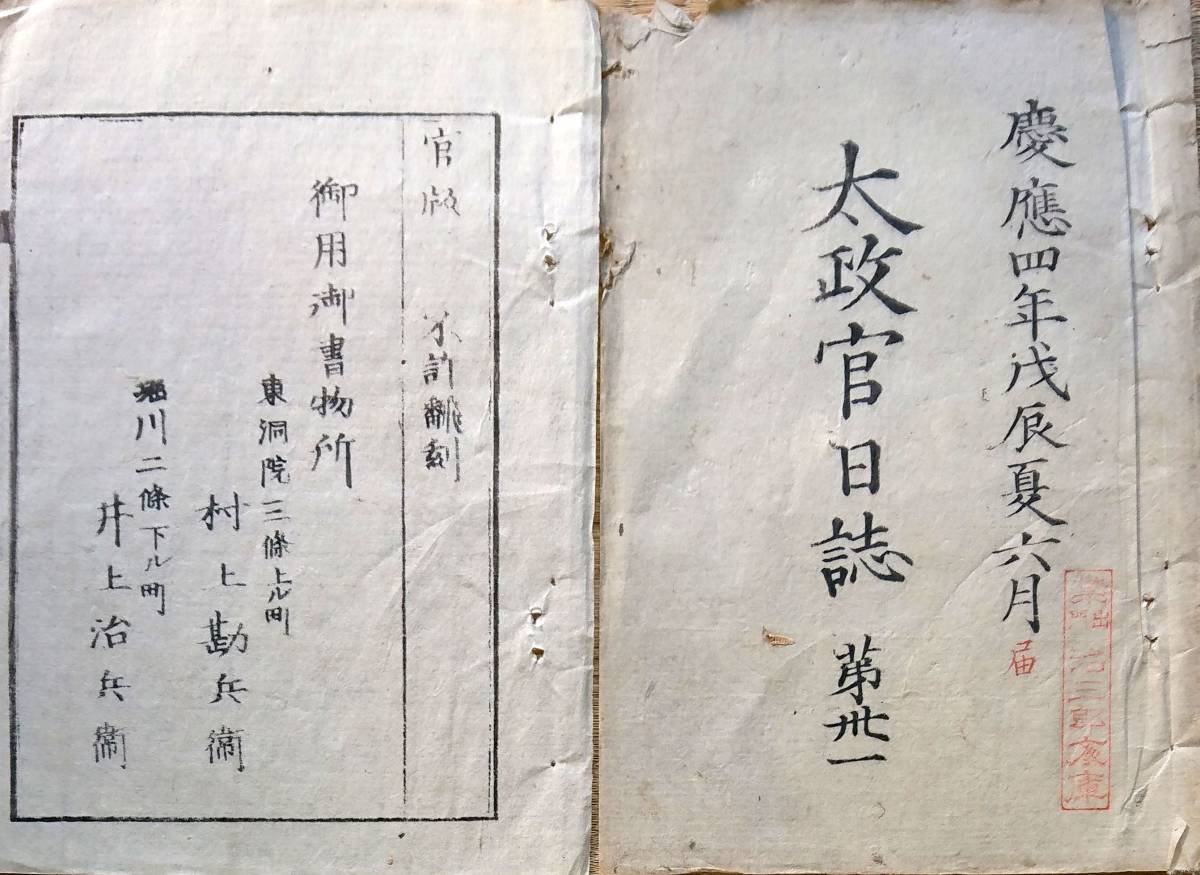 慶應四年戊辰夏六月
届
太政官日誌 第丗一
官版 不許翻刻
御用御書物所
東洞院三條上ル町
村上勘兵衞
堀川二條下ル町
井上治兵衞